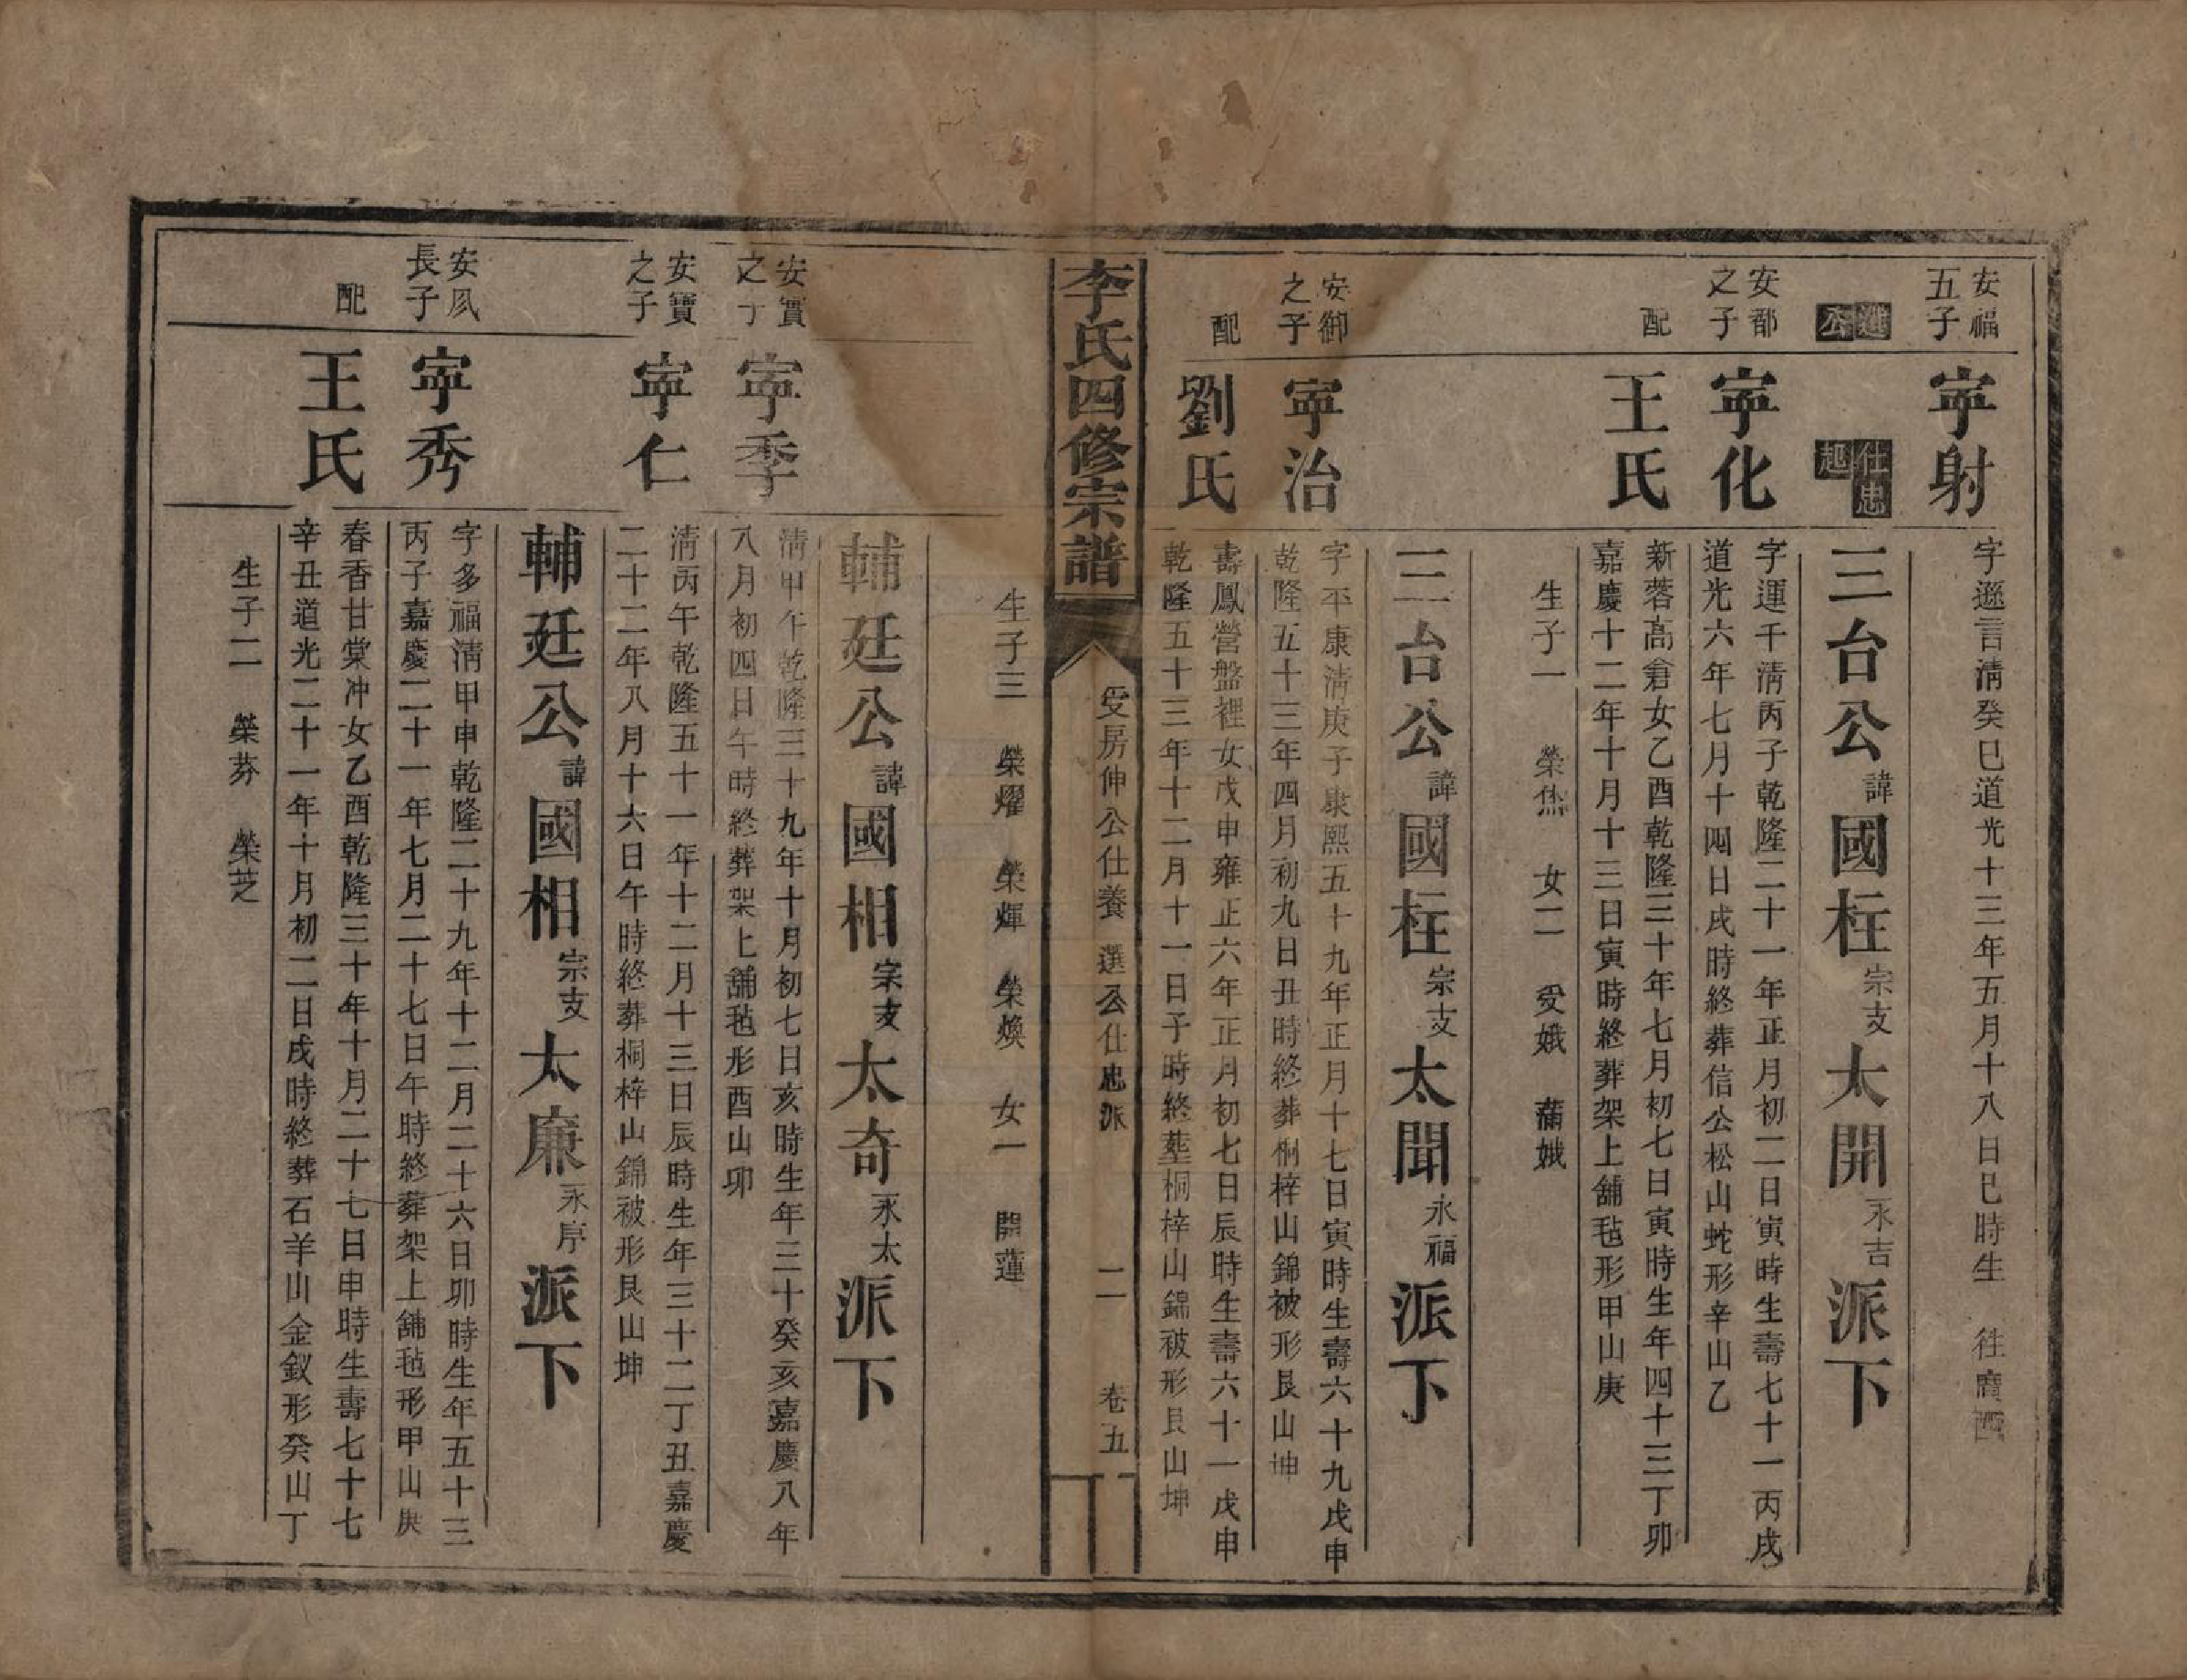 安福
五子
寍射
字遜言淸癸巳道光十三年五月十八日巳時生　往廣西
進公
仕忠
起
三台公諱國柱宗支太開永吉派下
安都
之子
寍化
字運千淸丙子乾隆二十一年正月初二日寅時生壽七十一丙戌
道光六年七月十四日戌時終葬信公松山蛇形辛山乙
配
王氏
新蓉高倉女乙酉乾隆三十年七月初七日寅時生年四十三丁卯
嘉慶十二年十月十三日寅時終葬架上舖毡形甲山庚
生子一　榮烋　女二　受娥　蒲娥
三台公諱國柱宗支太聞永福派下
安御
之子
寍治
字平康淸庚子康熙五十九年正月十七日寅時生壽六十九戊申
乾隆五十三年四月初九日丑時終葬桐梓山錦被形艮山坤
配
劉氏
壽鳳營盤裡女戊申雍正六年正月初七日辰時生壽六十一戊申
乾隆五十三年十二月十一日子時終塟桐梓山錦被形艮山坤
李氏四修宗譜
受房伸公仕養　選公仕忠派
二
卷五
生子三　榮燿　榮煇　榮煥　女一　開蓮
輔廷公諱國相宗支太奇永太派下
安實
之子
寍季
淸甲午乾隆三十九年十月初七日亥時生年三十癸亥嘉慶八年
八月初四日午時終葬架上舖毡形酉山卯
安寶
之子
寍仁
淸丙午乾隆五十一年十二月十三日辰時生年三十二丁丑嘉慶
二十二年八月十六日午時終葬桐梓山錦被形艮山坤
輔廷公諱國相宗支太廉永序派下
安夙
長子
寍秀
字多福淸甲申乾隆二十九年十二月二十六日卯時生年五十三
丙子嘉慶二十一年七月二十七日午時終葬架上舖毡形甲山庚
配
王氏
春香甘棠冲女乙酉乾隆三十年十月二十七日申時生壽七十七
辛丑道光二十一年十月初二日戌時終葬石羊山金釵形癸山丁
生子二　榮芬　榮芝